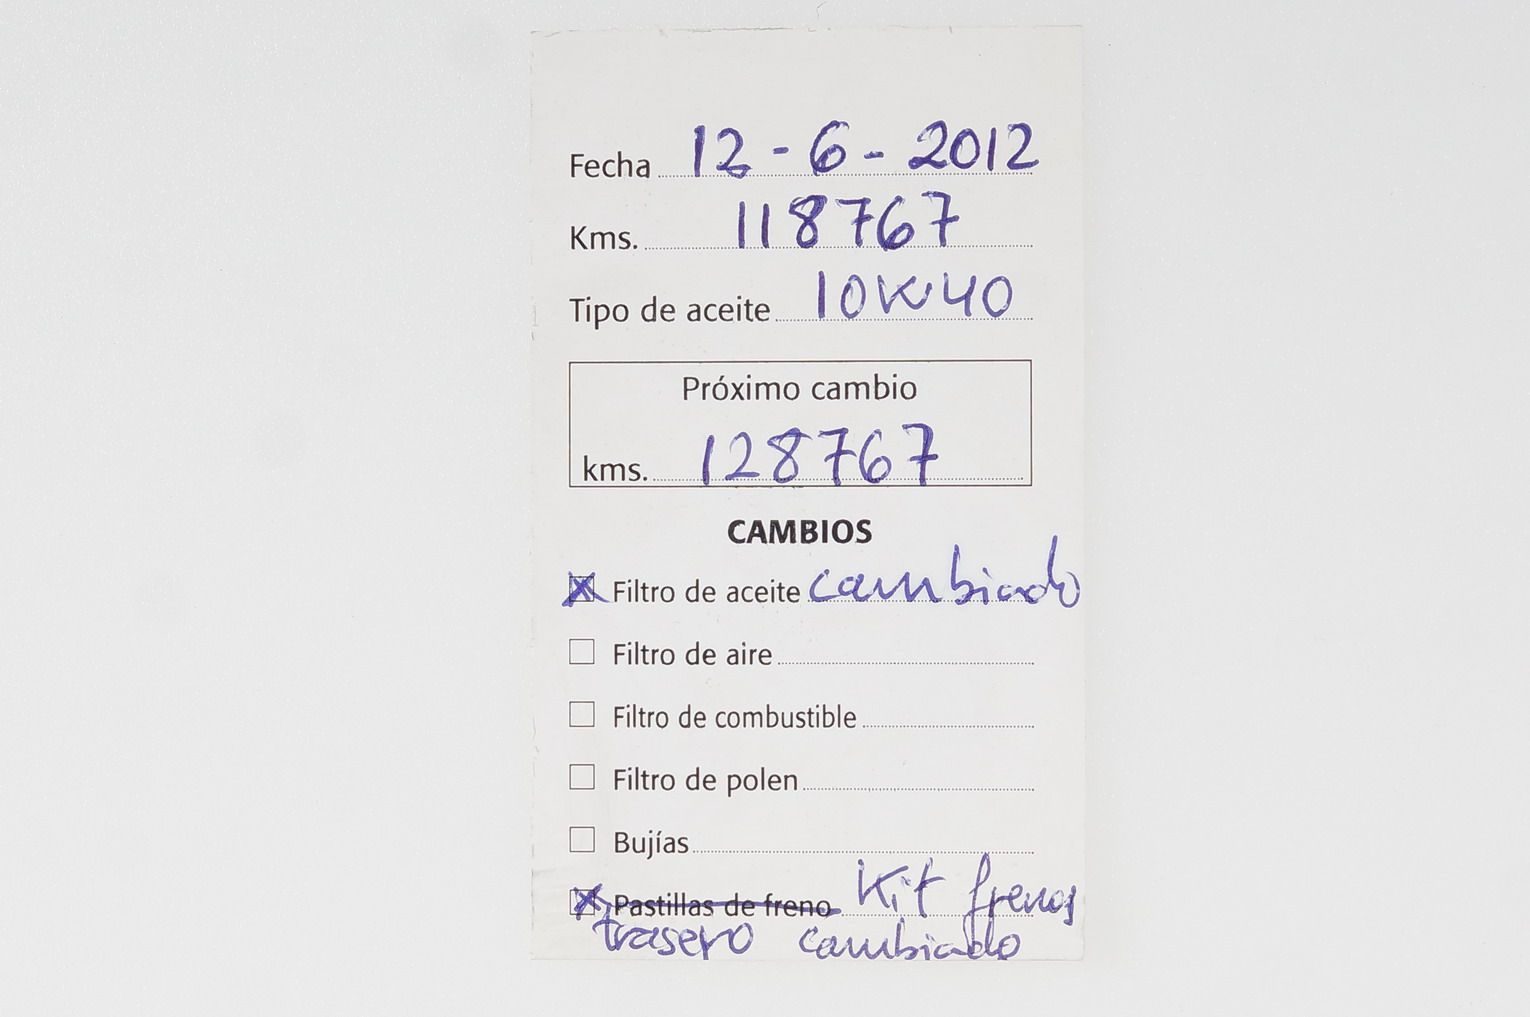 Fecha 12-6-2012
Kms. 118767
Tipo de aceite 10W40
Próximo cambio
kms. 128767
CAMBIOS
Filtro de aceite cambiado
Filtro de aire
Filtro de combustible
Filtro de polen
Bujías
Pastillas de freno Kit frenos
trasero cambiado